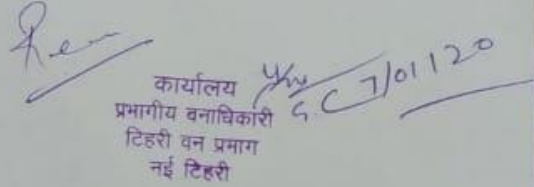 कार्यालय
प्रभागीय वनाधिकारी
टिहरी वन प्रमाग
नई टिहरी
7/01/20